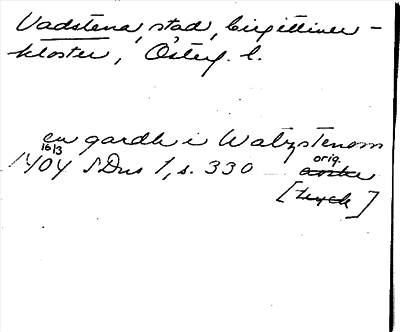 Vadstena, stad, birgittiner-
kloster, Österg. l.
en gardh i Watzstenom
1404 16/3 SDns 1, s. 330 orig.
[tryck]